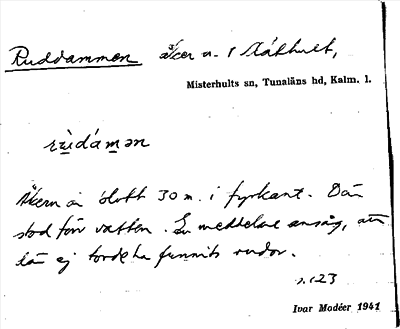 Ruddammen åker n. 1 Släthult,
Misterhults sn, Tunaläns hd, Kalm. l.
rùdámən
Åkern är blott 30 m. i fyrkant. Där
stod förr vatten. En meddelare ansåg, att
där ej torde ha funnits rudor.
s. 123
Ivar Modéer 1941